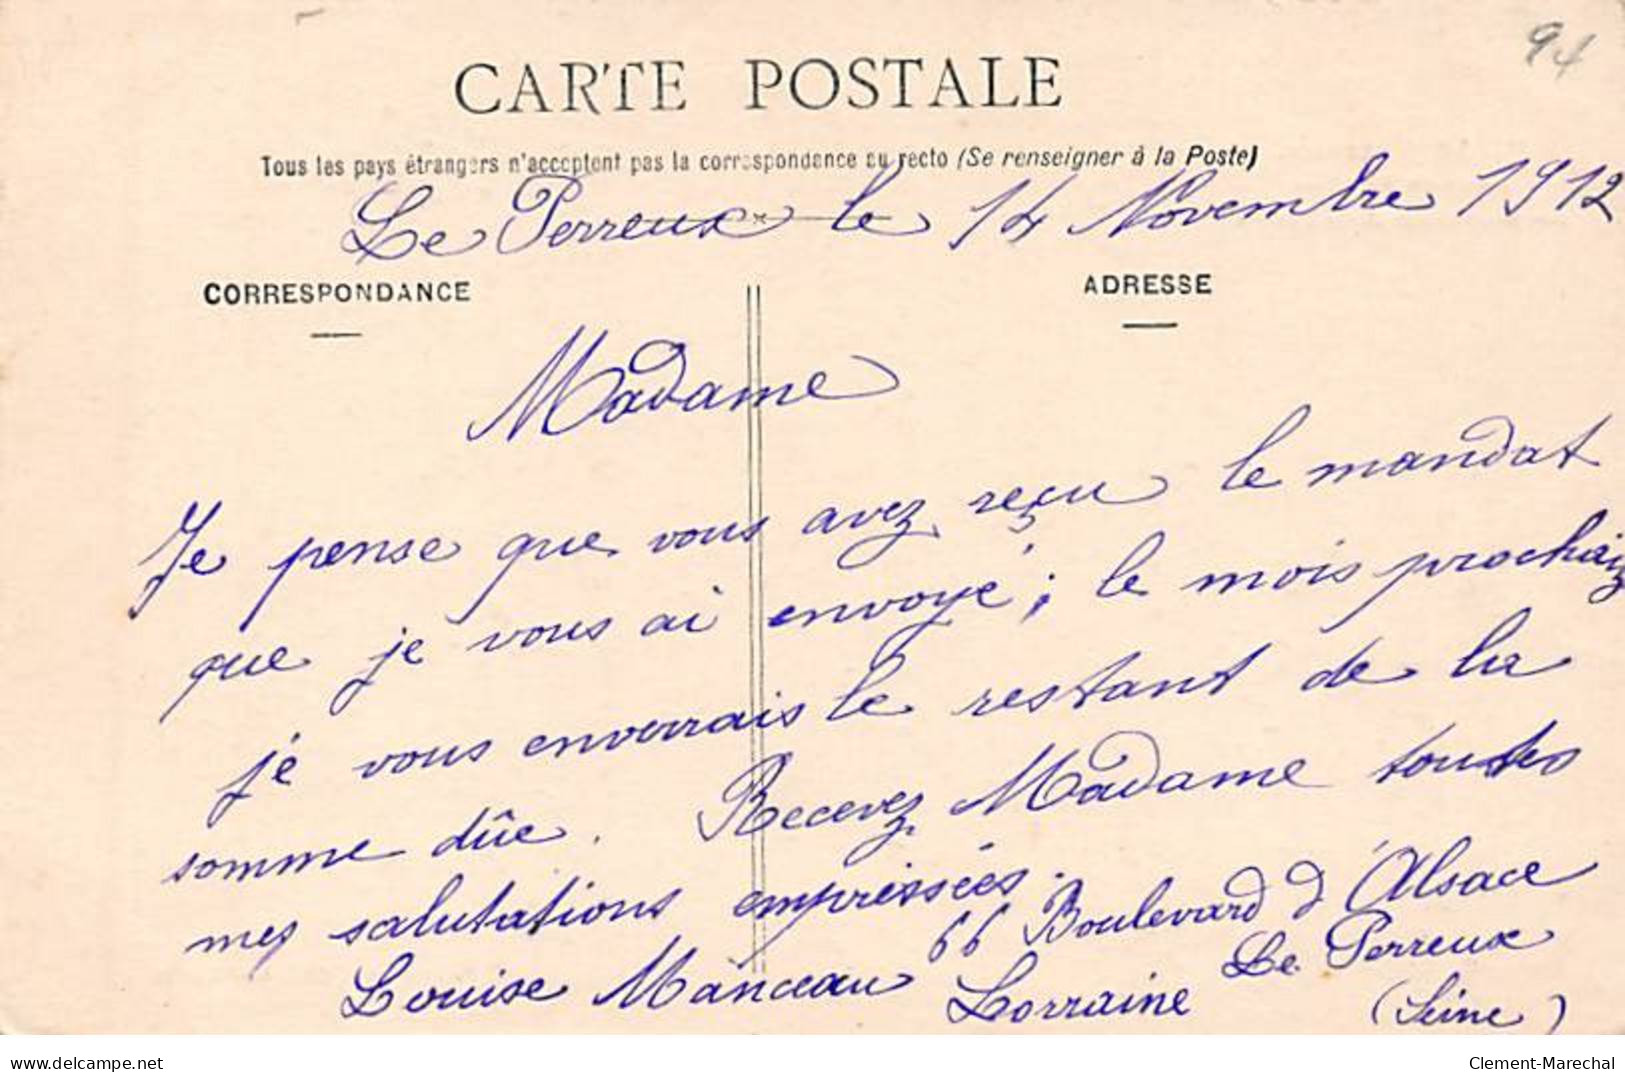 94
CARTE POSTALE
Tous les pays étrangers n'acceptent pas la correspondance au recto (Se renseigner à la Poste)
Le Perreux le 14 Novembre 1912
CORRESPONDANCE
ADRESSE
Madame
Je pense que vous avez reçu le mandat
que je vous ai envoyé ; le mois prochain
je vous enverrais le restant de la
somme dûe. Recevez Madame toutes
mes salutations empressées.
Louise Manceau 66 Boulevard d'Alsace
Lorraine Le Perreux
(Seine)
www.delcampe.net
Clement-Marechal